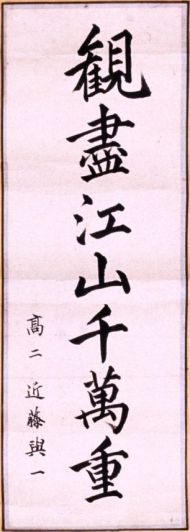 観盡江山千萬重
高二 近藤與一